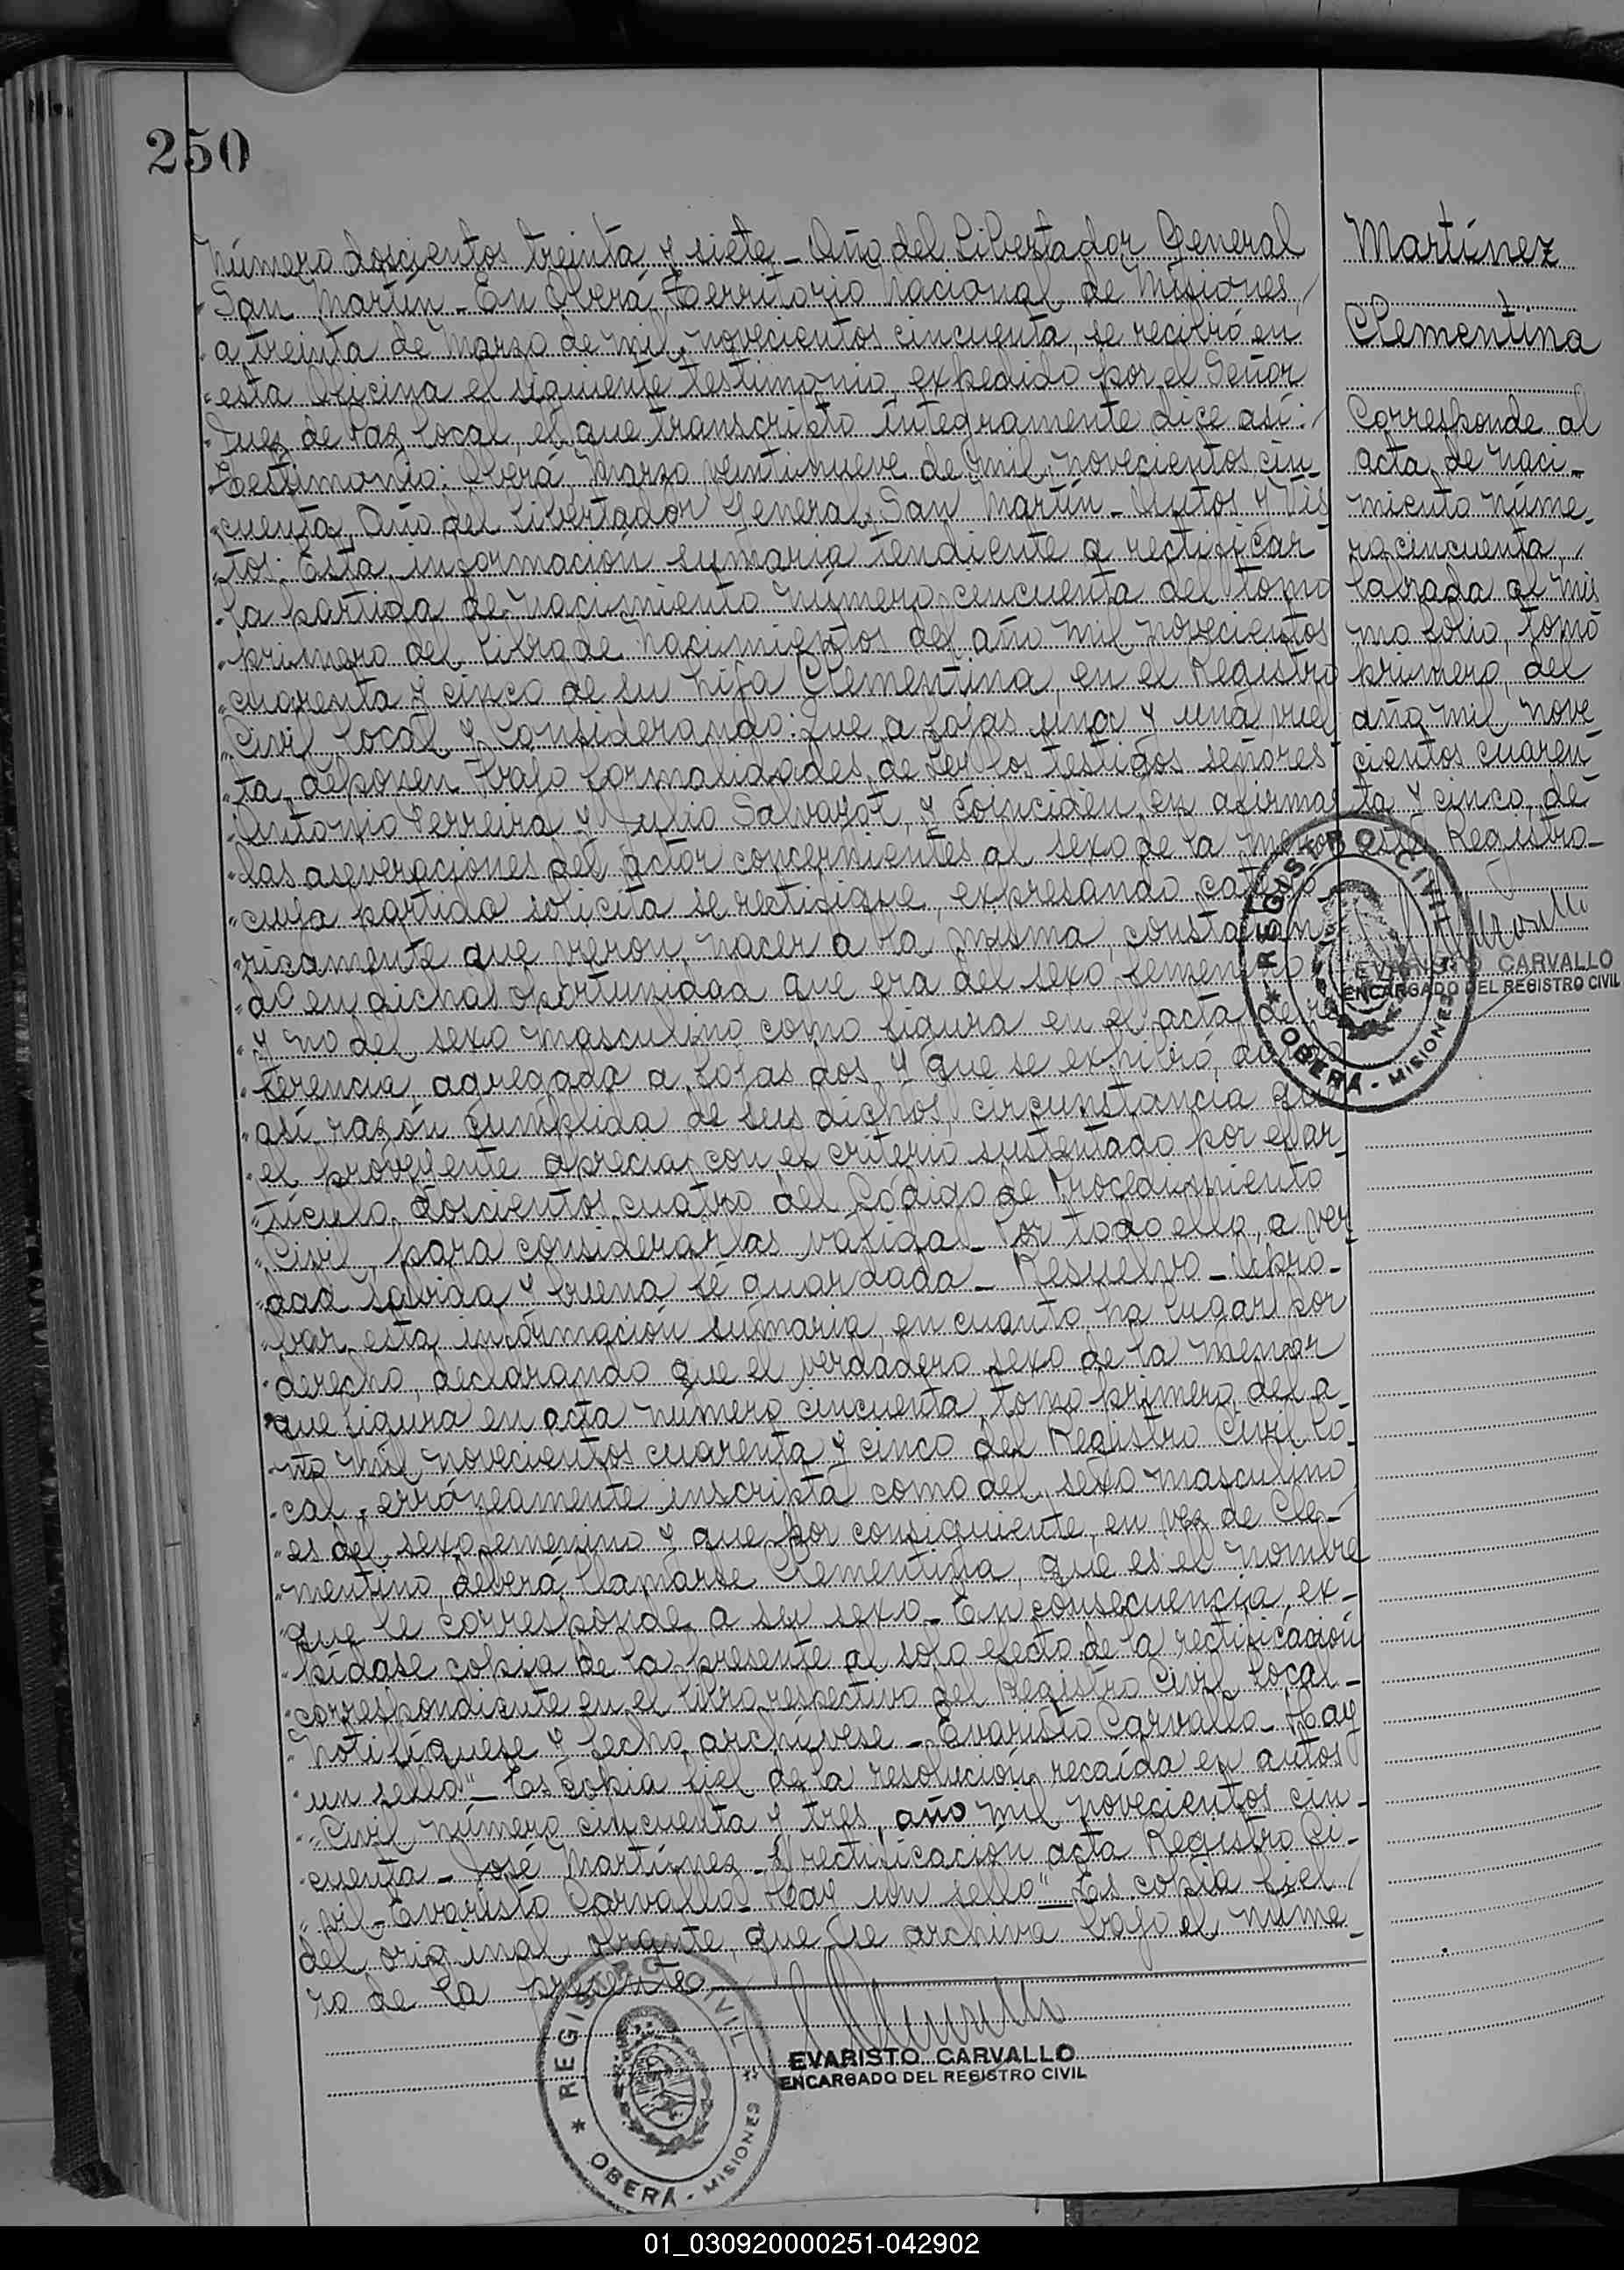 250
Número doscientos treinta y siete - Año del Libertador General
San Martín - En Oberá, Territorio Nacional de Misiones,
a treinta de Marzo de mil novecientos cincuenta, se recibió en
esta Oficina el siguiente testimonio expedido por el Señor
Juez de Paz local, el que transcripto íntegramente dice así:
"Testimonio: Oberá, Marzo veintinueve de mil novecientos cin-
"cuenta, Año del Libertador General San Martín - Autos y Vis
"tos: Esta información sumaria tendiente a rectificar
"la partida de nacimiento número cincuenta del tomo
"primero del libro de Nacimientos del año mil novecientos
"cuarenta y cinco de su hija Clementina, en el Registro
"Civil local y Considerando: Que a fojas una y una vuel
"ta, deponen bajo formalidades de ley los testigos señores
"Antonio Ferreira y Julio Salvarot, y coinciden en afirmar
"las aseveraciones del actor concernientes al sexo de la menor
"cuya partida solicita se rectifique, expresando categó
"ricamente que vieron nacer a la misma, constatan
"do en dicha oportunidad que era del sexo femenino
"y no del sexo masculino como figura en el acta de re
"ferencia, agregada a fojas dos y que se exhibió, dando
"así razón cumplida de sus dichos, circunstancia que
"el proveyente aprecia con el criterio sustentado por el ar
"tículo doscientos cuatro del Código de Procedimiento
"Civil, para considerarlas válidas - Por todo ello, a ver
"dad sabida y buena fé guardada - Resuelvo - Apro-
"bar esta información sumaria, en cuanto ha lugar por
"derecho, declarando que el verdadero sexo de la menor
"que figura en acta número cincuenta, tomo primero, del a
"ño mil novecientos cuarenta y cinco del Registro Civil lo-
"cal, erróneamente inscripta como del sexo masculino
"es del sexo femenino y que por consiguiente, en vez de Cle-
"mentino, deberá llamarse Clementina, que es el nombre
"que le corresponde a su sexo - En consecuencia, ex-
"pídase copia de la presente al solo efecto de la rectificación
"correspondiente en el libro respectivo del Registro Civil local -
"Notifíquese y fecho, archívese - Evaristo Carvallo - Hay
"un sello" - Es copia fiel de la resolución recaída en autos
"Civil número cincuenta y tres, año mil novecientos cin-
"cuenta - José Martínez - s/rectificación acta Registro Ci-
"vil - Evaristo Carvallo - Hay un sello" - Es copia fiel
del original obrante, que se archiva bajo el núme-
ro de la presente
Martínez
Clementina
Corresponde al
acta de naci-
miento núme-
ro cincuenta,
labrada al mis
mo folio, tomo
primero, del
año mil nove
cientos cuaren
ta y cinco, de
este Registro-
REGISTRO CIVIL
OBERÁ - MISIONES
EVARISTO CARVALLO
ENCARGADO DEL REGISTRO CIVIL
REGISTRO CIVIL
OBERÁ - MISIONES
EVARISTO CARVALLO
ENCARGADO DEL REGISTRO CIVIL
01_030920000251-042902